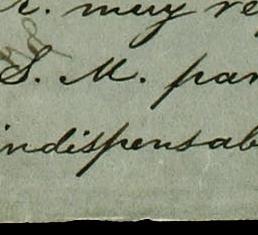 R. muy re
S. M. par
indispensab